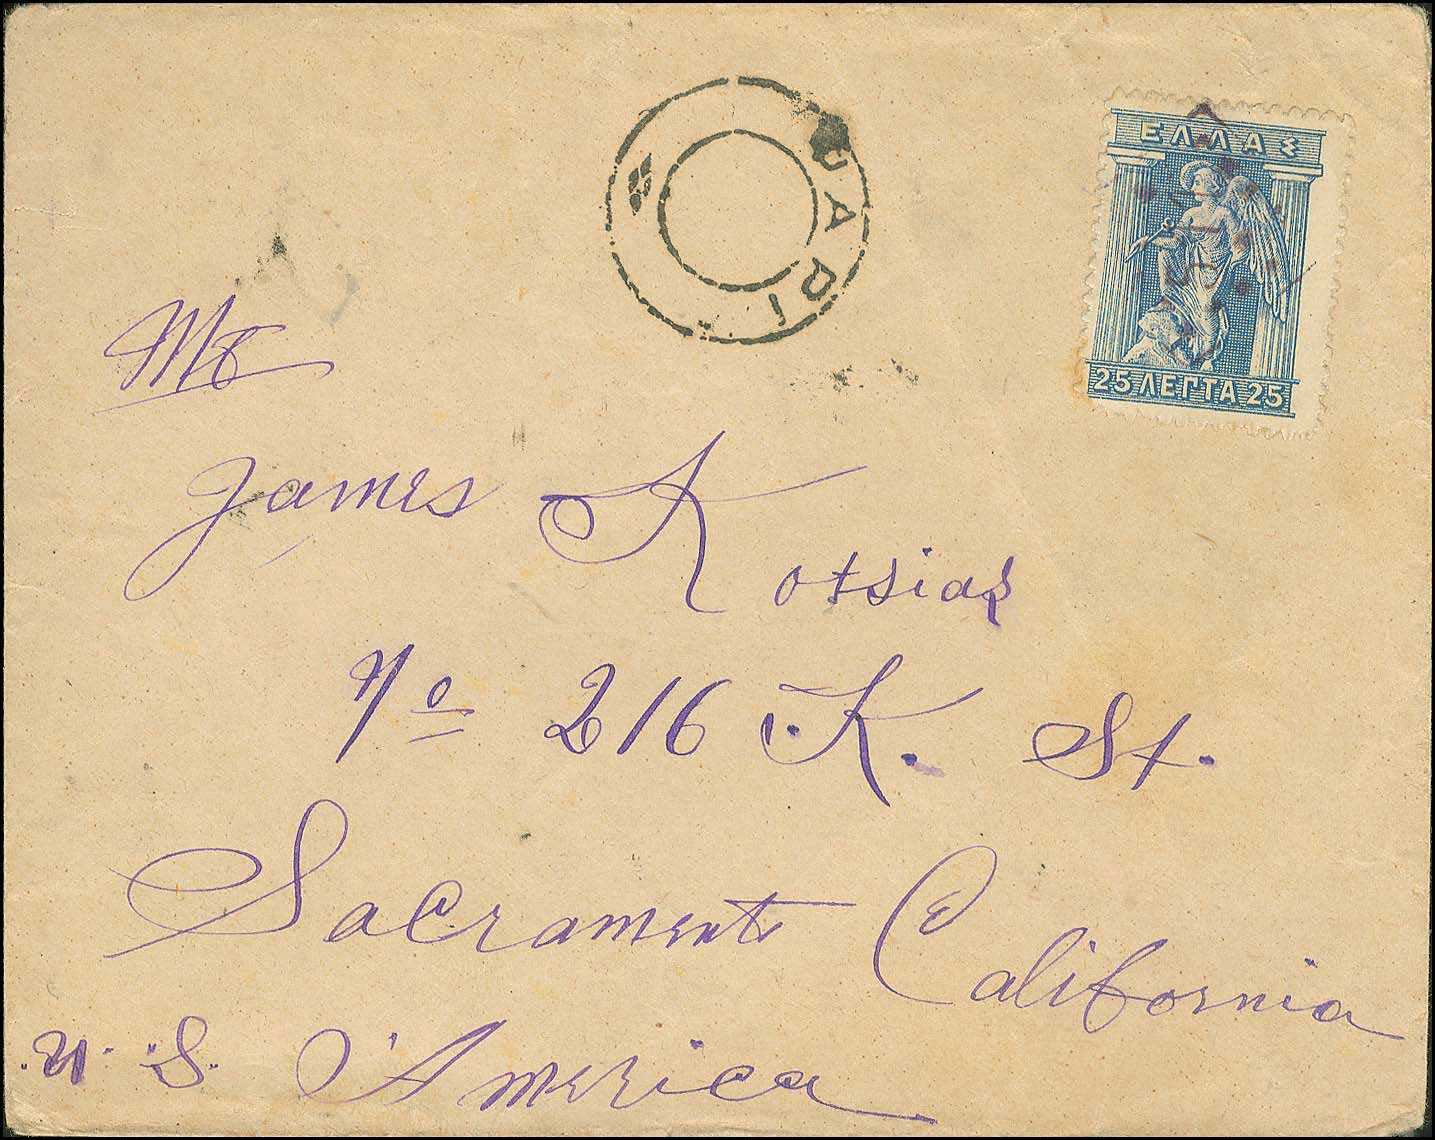 ΕΛΛΑΣ
25 ΛΕΠΤΑ 25
Mr
James Kotsias
No 216 K. St.
Sacramento California
U. S. America